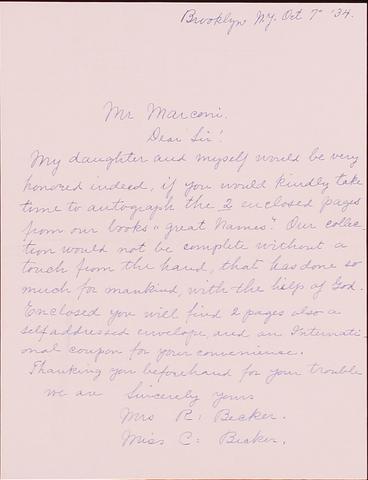 Brooklyn NY. Oct 7" '34.
Mr Marconi.
Dear Sir!
My daughter and myself would be very
honored indeed, if you would kindly take
time to autograph the 2 enclosed pages
from our books "great Names". Our collec-
tion would not be complete without a
touch from the hand, that has done so
much for mankind, with the help of God.
Enclosed you will find 2 pages also a
selfaddressed envelope, and an Internati-
onal coupon for your convenience.
Thanking you beforehand for your trouble
we are Sincerely yours
Mrs R: Becker.
Miss C: Becker.